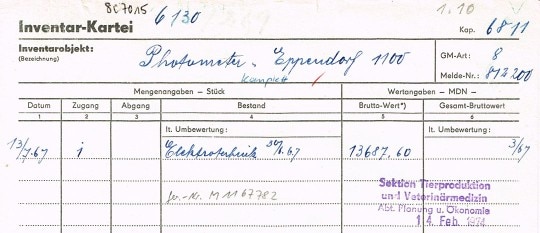 8C7015 6130 1.10
Inventar-Kartei Kap. 6811
Inventarobjekt: Photometer "Eppendorf 1100 GM-Art: 8
(Bezeichnung) komplett Melde-Nr.: 812200
Mengenangaben – Stück Wertangaben – MDN –
Datum Zugang Abgang Bestand Brutto-Wert*) Gesamt-Bruttowert
1 2 3 4 5 6
lt. Umbewertung: lt. Umbewertung:
13/7.67 1 Elektrotechnik 13687,60 3/67
Ser.-Nr. M 1167782
Sektion Tierproduktion
und Veterinärmedizin
Abt. Planung u. Ökonomie
14. Feb. 1974